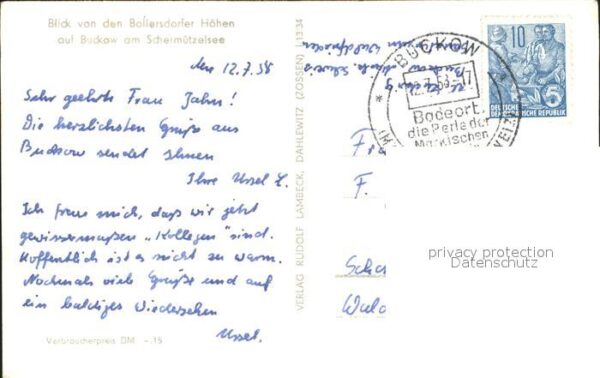 Blick von den Bollersdorfer Höhen
auf Buckow am Schermützelsee
den 12.7.58
Sehr geehrte Frau Jahn!
Die herzlichsten Grüße aus
Buckow sendet Ihnen
Ihre Ursel L.
Ich freue mich, daß wir jetzt
gewissermaßen „Kollegen" sind.
Hoffentlich ist es nicht zu warm.
Nochmals viele Grüße und auf
ein baldiges Wiedersehen
Ursel.
Verbraucherpreis DM -.15
VERLAG RUDOLF LAMBECK, DAHLEWITZ (ZOSSEN) I 1334
BUCKOW
12.7.58-17
Badeort.
die Perle der
Märkischen
10
DEUTSCHE
DEUTSCHE DEMOKRATISCHE REPUBLIK
5
F
F.
Wal
privacy protection
Datenschutz